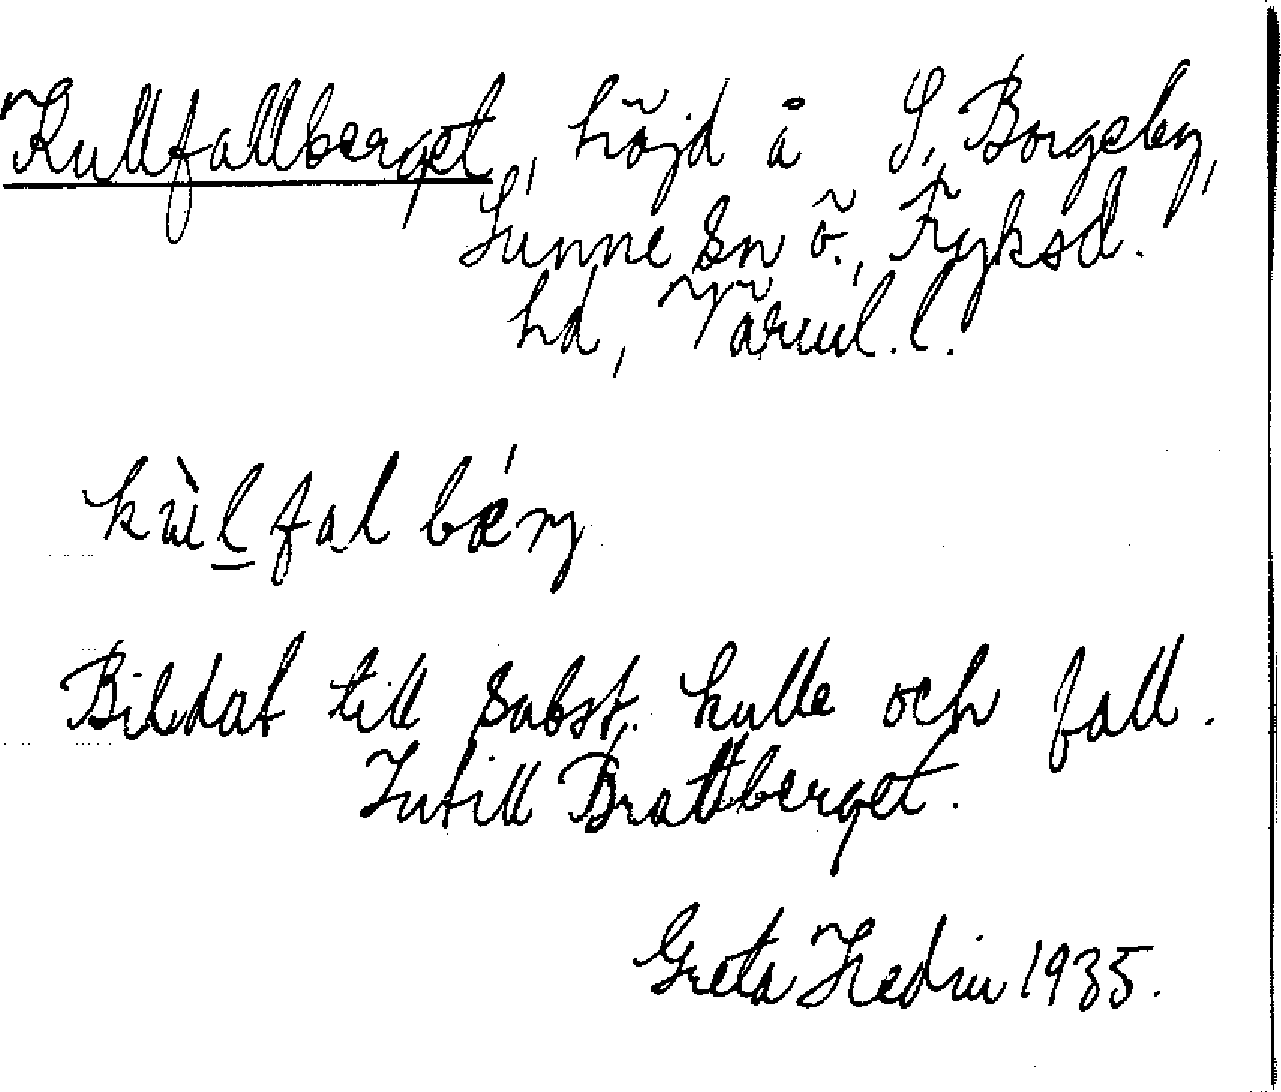 Kullfallberget, höjd å S. Borgeby,
Sunne sn ö., Fryksd.
hd, Värml. l.
kùl fal bǽrj
Bildat till subst. kulle och fall.
Intill Brattberget.
Greta Hedin 1935.